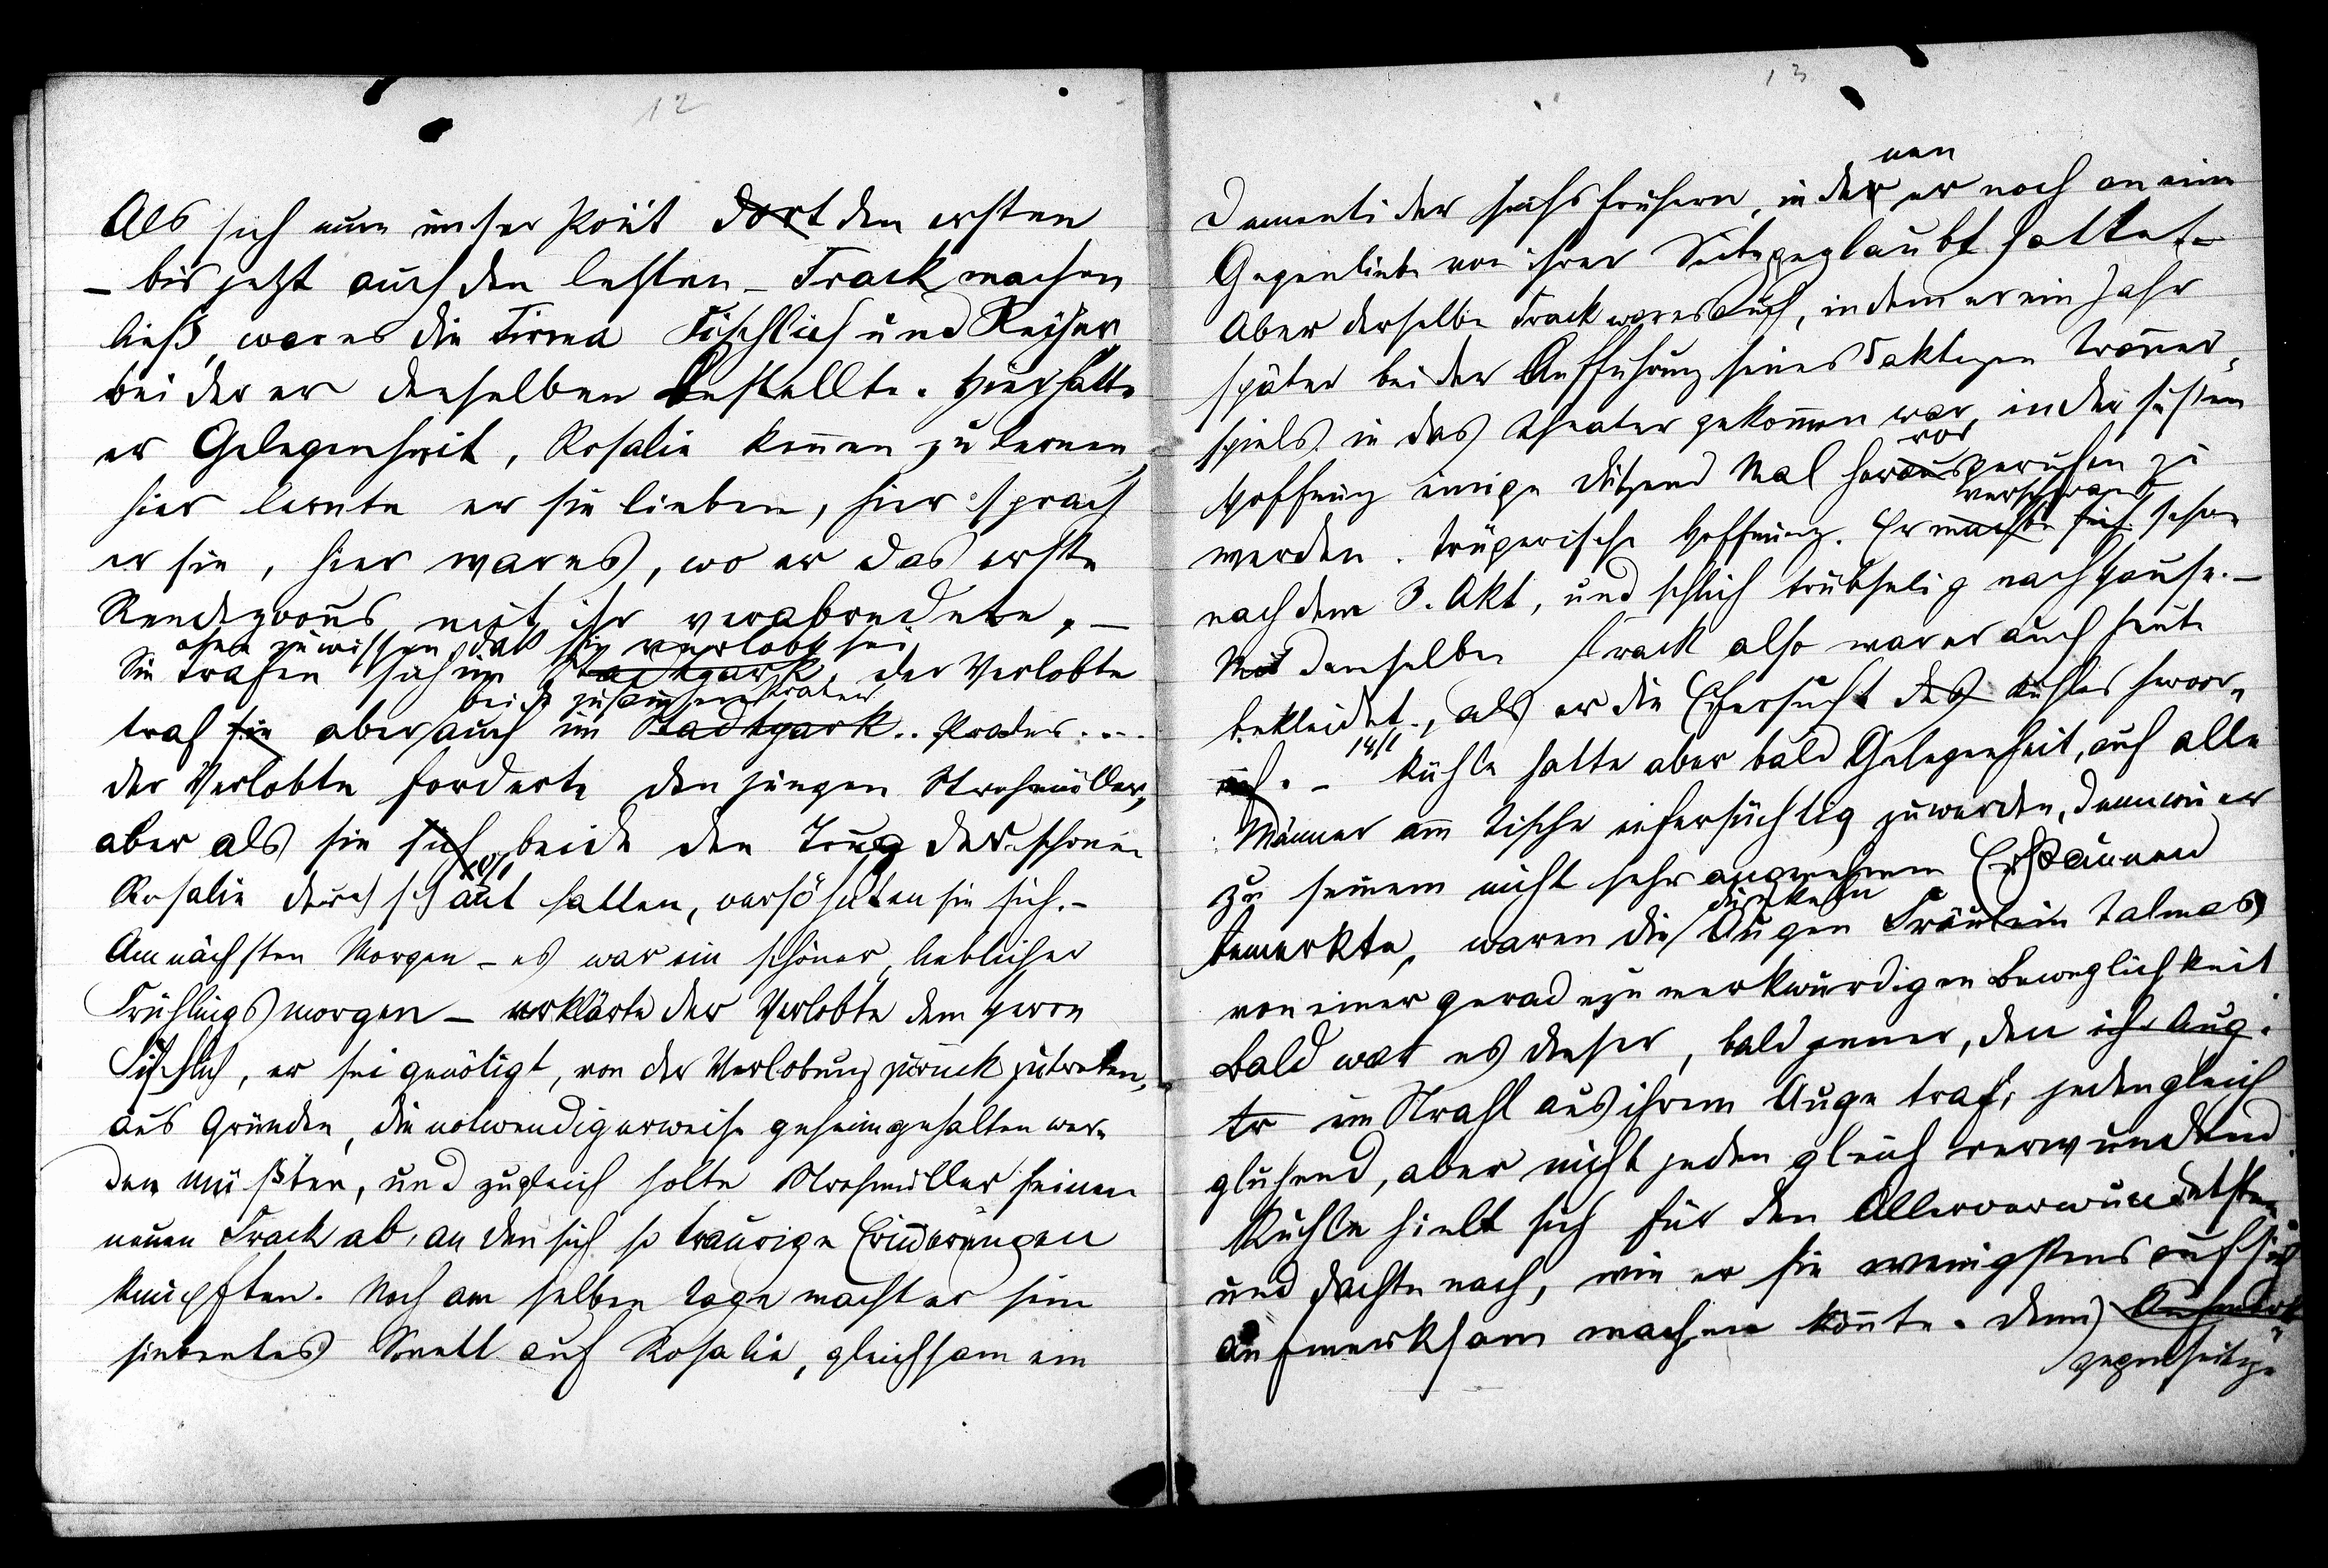 12
Als sich nun unser Poët dort den ersten
– bis jetzt auch den letzten – Frack machen
ließ, war es die Firma Fischlich und Reiser,
bei der er denselben bestellte. Hier hatte
er Gelegenheit, Rosalie kennen zu lernen,
hier lernte er sie lieben, hier sprach
er sie, hier war es, wo er das erste
Rendezvous mit ihr verabredete, –
ohne zu wissen, daß sie verlobt sei
Sie trafen sich im Stadtpark, der Verlobte
beide zusammen Prater
traf sie aber auch im Stadtpark.. Prater....
der Verlobte forderte den jungen Strohmüller,
aber als sie sich beide den Trug der schönen
Rosalie durchschaut hatten, versöhnten sie sich. –
Am nächsten Morgen – es war ein schöner, lieblicher
Frühlingsmorgen – erklärte der Verlobte dem Herrn
Fischlich, er sei genötigt, von der Verlobung zurückzutreten,
aus Gründen, die notwendigerweise geheimgehalten wer-
den müßten, und zugleich holte Strohmüller seinen
neuen Frack ab, an den sich so traurige Erinnerungen
knüpften. Noch am selben Tage macht er sein
siebentes Sonett auf Rosalie, gleichsam ein
13
nen
Dementi der sechs frühern, in der er noch an eine
Gegenliebe von ihrer Seite geglaubt hatte. –
Aber derselbe Frack war es auch, in dem er ein Jahr
später bei der Aufführung seines 5aktigen Trauer-
spiels in das Theater gekommen war, in der süßen
vor
Hoffnung einige Dutzend Mal herausgerufen zu
verschwand
werden. Trügerische Hoffnung. Er machte sich schon
nach dem 3. Akt, und schlich trübselig nach Hause. –
Mit demselben Frack also war er auch heute
bekleidet, als er die Eifersucht des Kühles hervor-
rief. – 14/1 Kühle hatte aber bald Gelegenheit, auf alle
Männer am Tische eifersüchtig zu werden, denn wie er
zu seinem nicht sehr angenehmen Erstaunen
dunkeln
bemerkte, waren die Augen Fräulein Talmas
von einer geradezu merkwürdigen Beweglichkeit
Bald war es dieser, bald jener, den ihr Aug.
tr im Strahl aus ihrem Auge traf, jeden gleich
glühend, aber nicht jeden gleich verwundend
Kühle hielt sich für den Allerverwundetsten
und dachte nach, wie er sie wenigstens auf sich
aufmerksam machen könnte. denn Aufmerk
gegenseitige